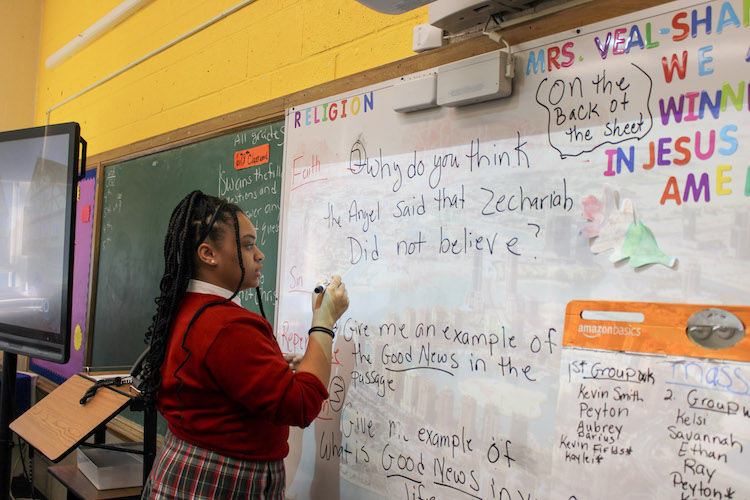 RELIGION
MRS. VEAL-SHA
WE
WINN
IN JESUS
AME
(On the
Back of
the Sheet
All grades
Faith
② Why do you think
the Angel said that Zechariah
Did not believe?
Sin
Give me an example of
the Good News in the
passage
③
Give me example of
What is Good News in
life
amazonbasics
1st Group wk
Kevin Smith
Peyton
Aubrey
Darius
Kevin Fields*
Kaylei*
Mass
2. Group wk
Kelsi
Savannah
Ethan
Ray
Peyton*